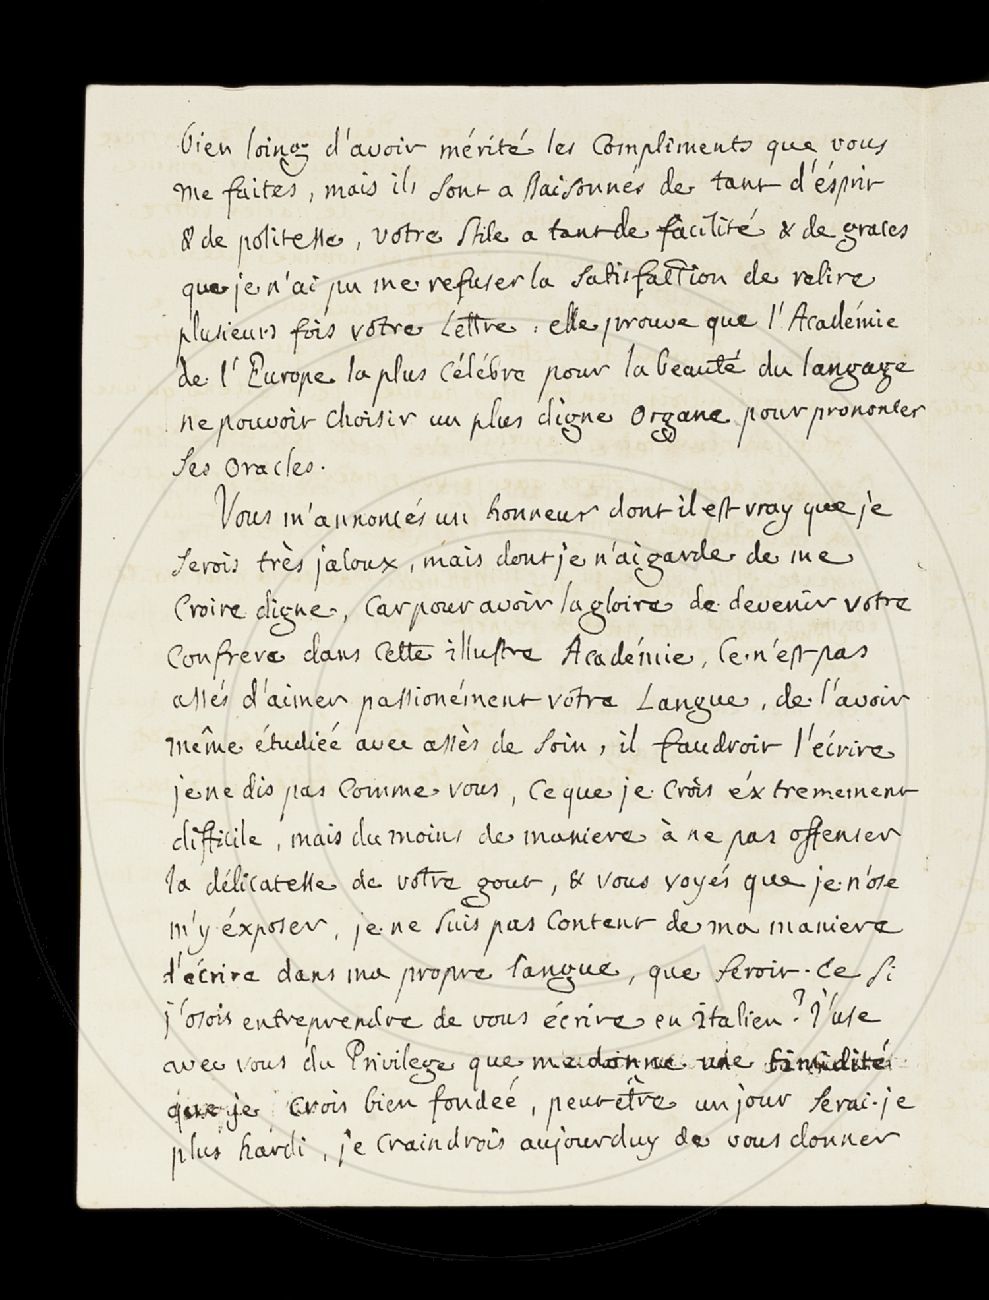 bien loing d'avoir mérité les Compliments que vous
me faites, mais ils sont a ssaisonnés de tant d'ésprit
& de politesse, votre stile a tant de facilité & de graces
que je n'ai pu me refuser la satisfaction de relire
plusieurs fois votre Lettre : elle prouve que l'Académie
de l'Europe la plus Célébre pour la beauté du langage
ne pouvoit choisir un plus digne Organe pour prononcer
ses oracles.
Vous m'annoncés un honneur dont il est vray que je
serois très jaloux, mais dont je n'ai garde de me
Croire digne, Car pour avoir la gloire de devenir votre
Confrere dans Cette illustre Académie, Ce n'est pas
assés d'aimer passionément votre Langue, de l'avoir
même étudieé avec assès de soin, il faudroit l'ecrire
je ne dis pas Comme vous, Ce que je Crois éxtremement
difficile, mais du moins de maniere à ne pas offenser
la délicatesse de votre gout, & vous voyés que je n'ose
m'y éxposer, je ne suis pas Content de ma maniere
d'écrire dans ma propre langue, que seroit-Ce si
j'osois entreprendre de vous écrire en Italien ? J'use
avec vous du Privilege que me donne une timidité
que je Crois bien fondeé, peut être un jour serai-je
plus hardi, je Craindrois aujourduy de vous donner